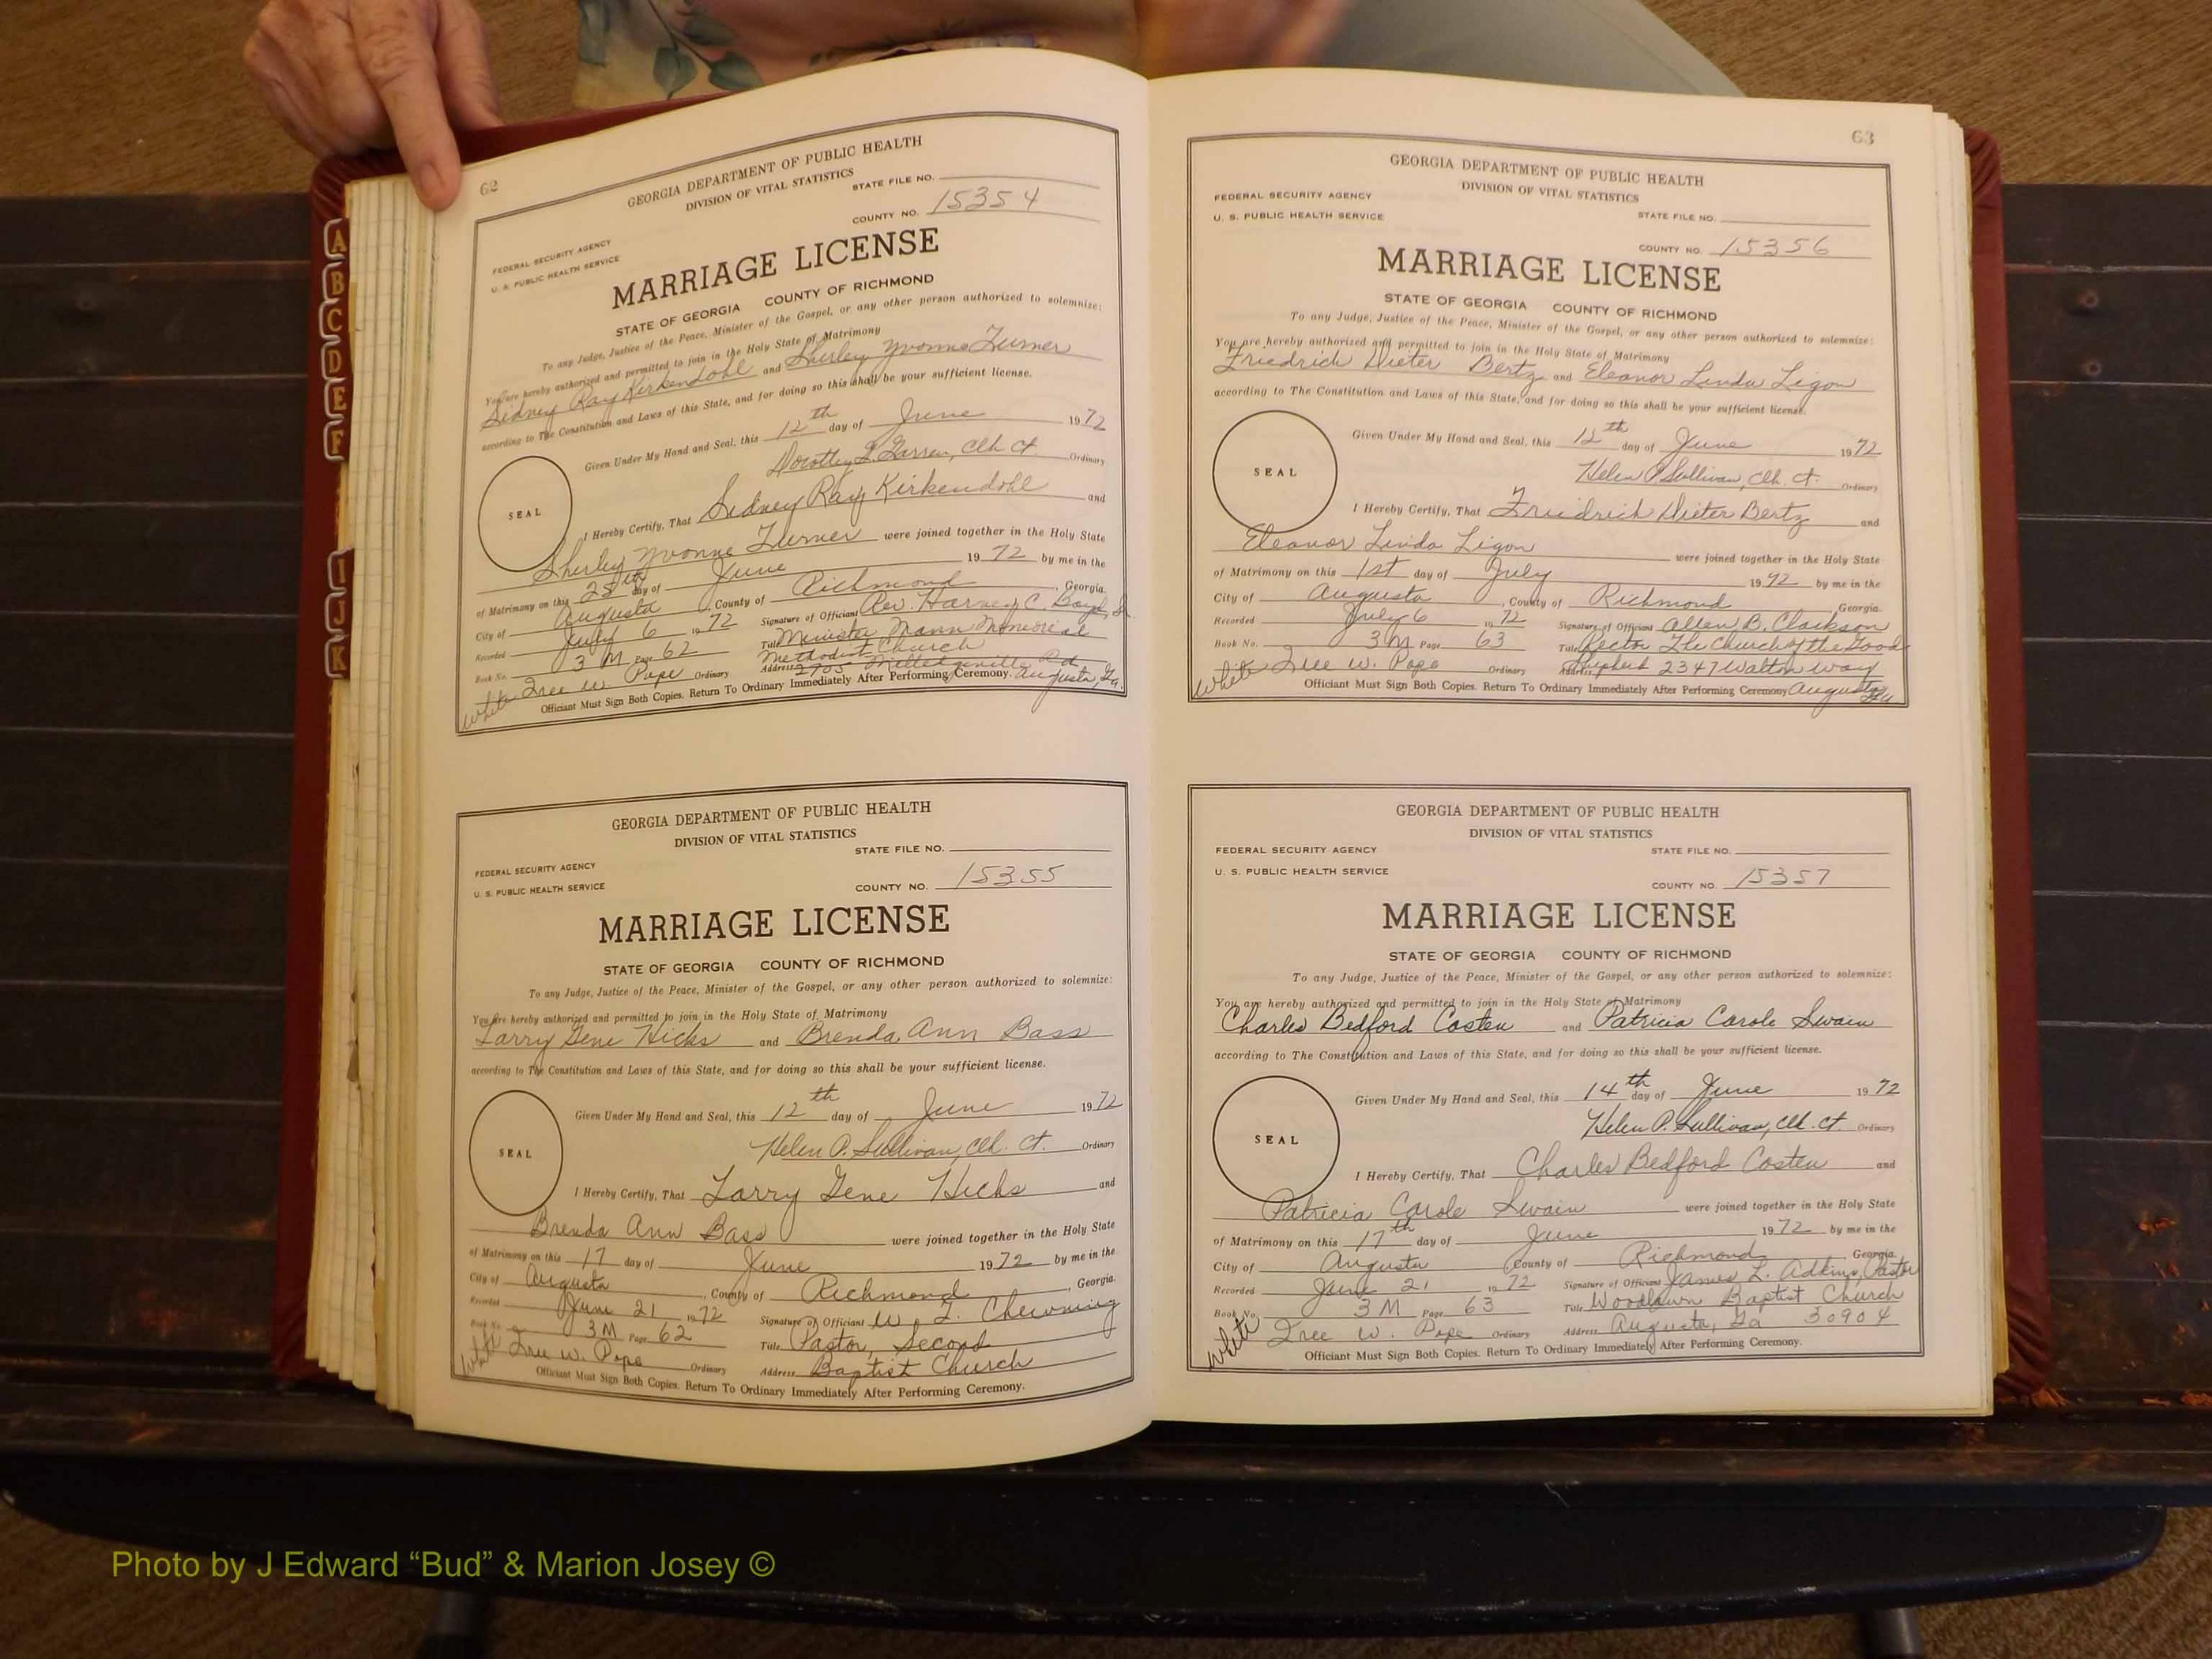 62
GEORGIA DEPARTMENT OF PUBLIC HEALTH
DIVISION OF VITAL STATISTICS
STATE FILE NO.
COUNTY NO. 15354
FEDERAL SECURITY AGENCY
U. S. PUBLIC HEALTH SERVICE
MARRIAGE LICENSE
STATE OF GEORGIA COUNTY OF RICHMOND
To any Judge, Justice of the Peace, Minister of the Gospel, or any other person authorized to solemnize:
You are hereby authorized and permitted to join in the Holy State of Matrimony
Sidney Ray Kirkendohl and Shirley Yvonne Turner
according to The Constitution and Laws of this State, and for doing so this shall be your sufficient license.
Given Under My Hand and Seal, this 12th day of June 1972
Dorothy Clk Ct. Ordinary
SEAL
I Hereby Certify, That Sidney Ray Kirkendohl and
Shirley Yvonne Turner were joined together in the Holy State
of Matrimony on this 25th day of June 1972 by me in the
City of Augusta, County of Richmond, Georgia.
Recorded July 6 1972 Signature of Officiant Rev. Harvey C. Boyd, Sr.
Book No. 3 M Page 62 Title Minister Mann Memorial
Methodist Church
white Tree W. Pope Ordinary Address 2705 Milledgeville Rd.
Augusta, Ga.
Officiant Must Sign Both Copies. Return To Ordinary Immediately After Performing Ceremony.
GEORGIA DEPARTMENT OF PUBLIC HEALTH
DIVISION OF VITAL STATISTICS
STATE FILE NO.
FEDERAL SECURITY AGENCY
U. S. PUBLIC HEALTH SERVICE
COUNTY NO. 15355
MARRIAGE LICENSE
STATE OF GEORGIA COUNTY OF RICHMOND
To any Judge, Justice of the Peace, Minister of the Gospel, or any other person authorized to solemnize:
You are hereby authorized and permitted to join in the Holy State of Matrimony
Larry Gene Hicks and Brenda Ann Bass
according to The Constitution and Laws of this State, and for doing so this shall be your sufficient license.
Given Under My Hand and Seal, this 12th day of June 1972
Helen P. Sullivan, Clk. Ct. Ordinary
SEAL
I Hereby Certify, That Larry Gene Hicks and
Brenda Ann Bass were joined together in the Holy State
of Matrimony on this 17 day of June 1972 by me in the
City of Augusta, County of Richmond, Georgia.
Recorded June 21 1972 Signature of Officiant W. L. Chewning
Book No. 3 M Page 62 Title Pastor, Second
white Tree W. Pope Ordinary Address Baptist Church
Officiant Must Sign Both Copies. Return To Ordinary Immediately After Performing Ceremony.
63
GEORGIA DEPARTMENT OF PUBLIC HEALTH
DIVISION OF VITAL STATISTICS
FEDERAL SECURITY AGENCY
U. S. PUBLIC HEALTH SERVICE
STATE FILE NO.
COUNTY NO. 15356
MARRIAGE LICENSE
STATE OF GEORGIA COUNTY OF RICHMOND
To any Judge, Justice of the Peace, Minister of the Gospel, or any other person authorized to solemnize:
You are hereby authorized and permitted to join in the Holy State of Matrimony
Friedrich Dieter Bertz and Eleanor Linda Ligon
according to The Constitution and Laws of this State, and for doing so this shall be your sufficient license.
Given Under My Hand and Seal, this 12th day of June 1972
Helen P. Sullivan, Clk. Ct. Ordinary
SEAL
I Hereby Certify, That Friedrich Dieter Bertz and
Eleanor Linda Ligon were joined together in the Holy State
of Matrimony on this 1st day of July 1972 by me in the
City of Augusta, County of Richmond, Georgia.
Recorded July 6 1972 Signature of Officiant Allen B. Clarkson
Book No. 3 M Page 63 Title Rector The Church of the Good
white Tree W. Pope Ordinary Address Shepherd 2347 Walton Way
Officiant Must Sign Both Copies. Return To Ordinary Immediately After Performing Ceremony Augusta, Ga.
GEORGIA DEPARTMENT OF PUBLIC HEALTH
DIVISION OF VITAL STATISTICS
FEDERAL SECURITY AGENCY
STATE FILE NO.
U. S. PUBLIC HEALTH SERVICE
COUNTY NO. 15357
MARRIAGE LICENSE
STATE OF GEORGIA COUNTY OF RICHMOND
To any Judge, Justice of the Peace, Minister of the Gospel, or any other person authorized to solemnize:
You are hereby authorized and permitted to join in the Holy State of Matrimony
Charles Bedford Costen and Patricia Carole Swain
according to The Constitution and Laws of this State, and for doing so this shall be your sufficient license.
Given Under My Hand and Seal, this 14th day of June 1972
Helen P. Sullivan, Clk. Ct. Ordinary
SEAL
I Hereby Certify, That Charles Bedford Costen and
Patricia Carole Swain were joined together in the Holy State
of Matrimony on this 17th day of June 1972 by me in the
City of Augusta, County of Richmond, Georgia.
Recorded June 21 1972 Signature of Officiant James L. Adkins, Pastor
Book No. 3 M Page 63 Title Woodlawn Baptist Church
white Tree W. Pope Ordinary Address Augusta, Ga 30904
Officiant Must Sign Both Copies. Return To Ordinary Immediately After Performing Ceremony.
A
B
C
D
E
F
I
J
K
Photo by J Edward “Bud” & Marion Josey ©